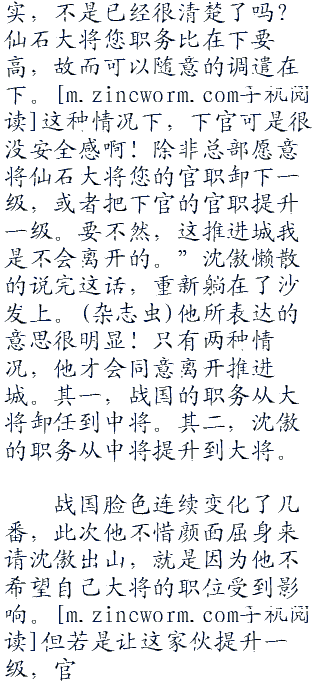 实，不是已经很清楚了吗？
仙石大将您职务比在下要
高，故而可以随意的调遣在
下。[m.zincworm.com手机阅
读]这种情况下，下官可是很
没安全感啊！除非总部愿意
将仙石大将您的官职卸下一
级，或者把下官的官职提升
一级。要不然，这推进城我
是不会离开的。”沈傲懒散
的说完这话，重新躺在了沙
发上。(杂志虫)他所表达的
意思很明显！只有两种情
况，他才会同意离开推进
城。其一，战国的职务从大
将卸任到中将。其二，沈傲
的职务从中将提升到大将。
战国脸色连续变化了几
番，此次他不惜颜面屈身来
请沈傲出山，就是因为他不
希望自己大将的职位受到影
响。[m.zincworm.com手机阅
读]但若是让这家伙提升一
级，官